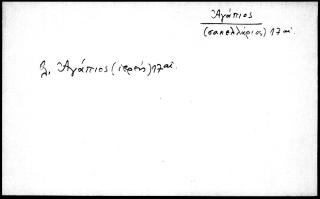 Ἀγάπιος
(σακελλάριος) 17 αἰ.
βλ. Ἀγάπιος (ἱερεύς) 17 αἰ.